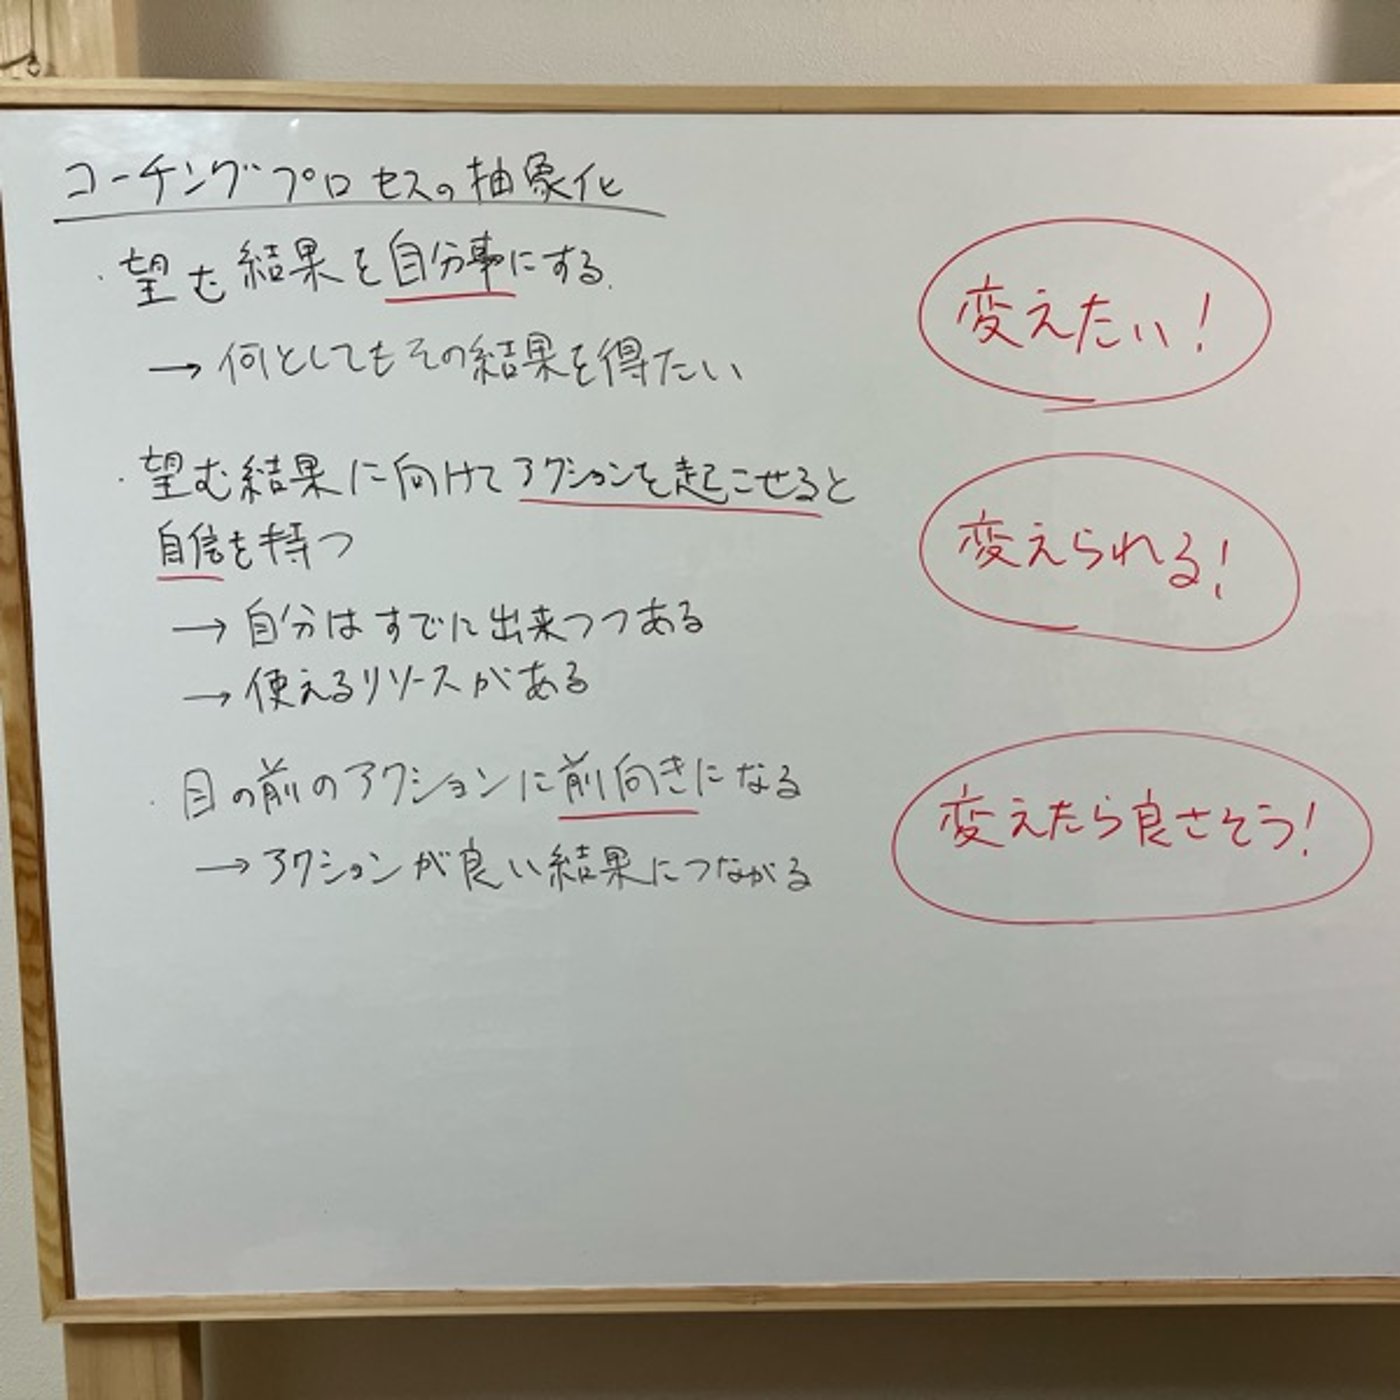 コーチングプロセスの抽象化
・望む結果を自分事にする.
→何としてもその結果を得たい
変えたい!
・望む結果に向けてアクションを起こせると
自信を持つ
→自分はすでに出来つつある
→使えるリソースがある
変えられる!
・目の前のアクションに前向きになる
→アクションが良い結果につながる
変えたら良さそう!